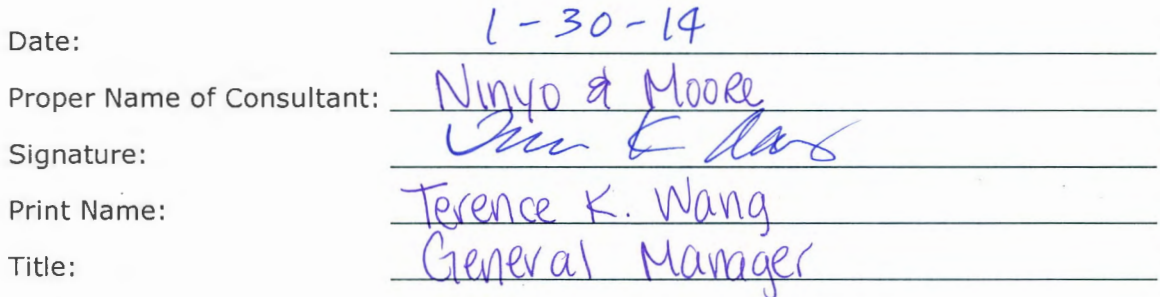 Date: 1-30-14
Proper Name of Consultant: Ninyo & Moore
Signature:
Print Name: Terence K. Wang
Title: General Manager